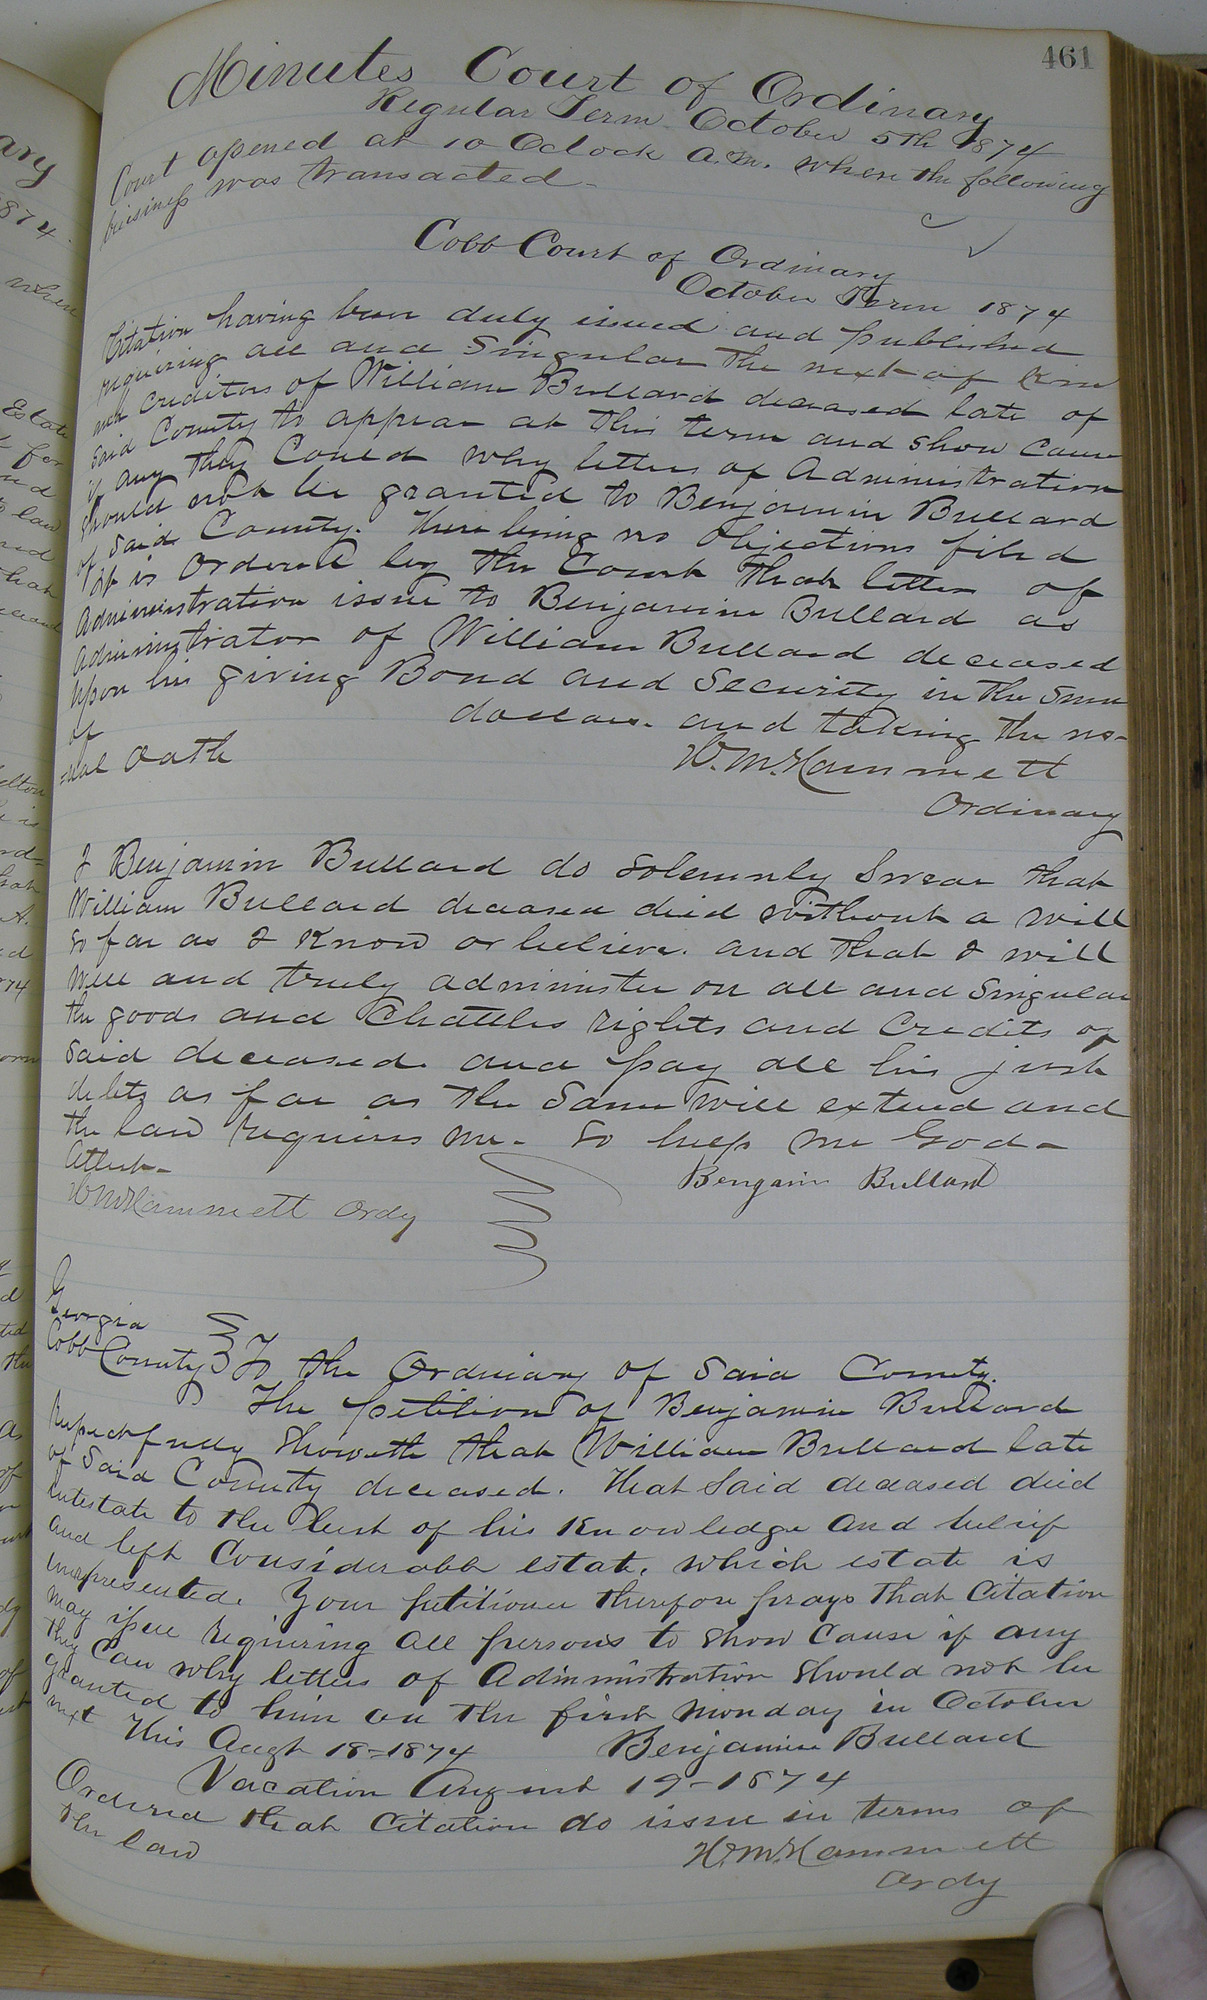 461
Minutes Court of Ordinary
Regular Term October 5th 1874
Court opened at 10 Oclock A.M. when the following
business was transacted-
Cobb Court of Ordinary
October Term 1874
Citation having been duly issued and published
requiring all and Singular the next of Kin
and creditors of William Bullard deceased late of
said County to appear at this term and show cause
if any they Could why letters of Administration
should not be granted to Benjamin Bullard
of said County. There being no Objections filed
it is Ordered by the Court that letters of
Administration issue to Benjamin Bullard as
Administrator of William Bullard deceased
upon his giving Bond and Security in the Sum
of dollars. and taking the us-
-ual Oath
H. M. Hammett
Ordinary
I Benjamin Bullard do solemnly Swear that
William Bullard deceased died without a will
so far as I know or believe. and that I will
well and truly administer on all and Singular
the goods and Chattles rights and Credits of
said deceased. and pay all his just
debts as far as the Same will extend and
the law requires me- So help me God-
Attest-
Bengamin Bullard
H M Hammett Ordy
Georgia
Cobb County To the Ordinary of Said County.
The petition of Benjamin Bullard
Respectfully Showeth that William Bullard late
of Said County deceased. That Said deceased died
intestate to the best of his Knowledge and belief
and left Considerable estate, which estate is
unrepresented. Your petitioner therefore prays that Citation
may issue requiring all persons to show Cause if any
they Can why letters of Administration should not be
granted to him on the first Monday in October
next This Augt 18-1874 Benjamin Bullard
Vacation August 19-1874
Ordered that Citation do issue in terms of
the law
H. M. Hammett
Ordy